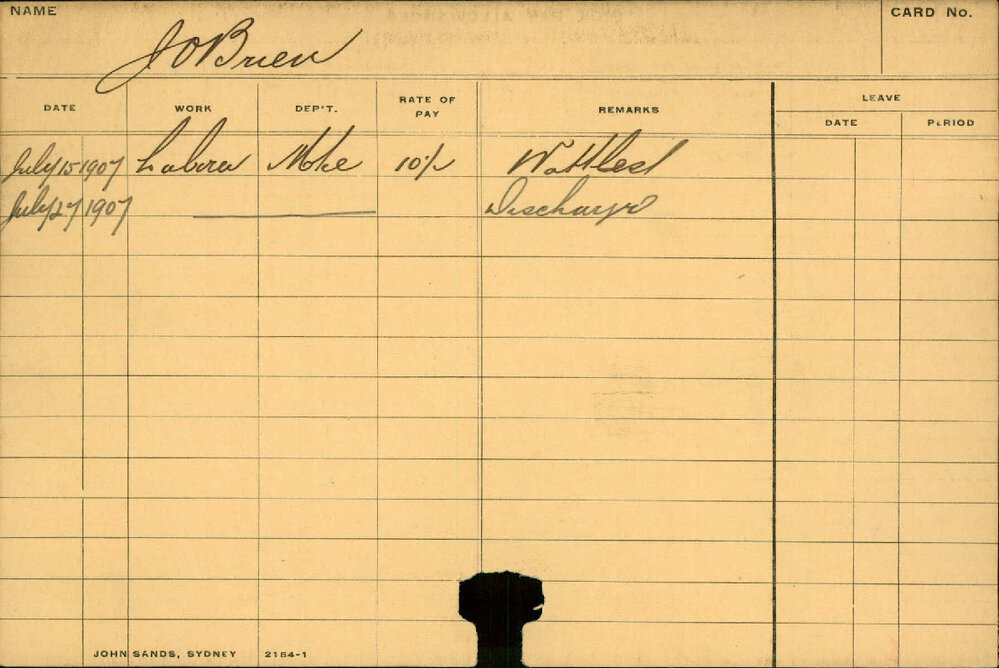 NAME
CARD No.
J OBrien
DATE WORK DEP'T. RATE OF PAY REMARKS LEAVE
DATE PERIOD
July 15 1907 Labirer 10/- Wattlest
July 27 1907 Discharge
JOHN SANDS, SYDNEY 2154-1